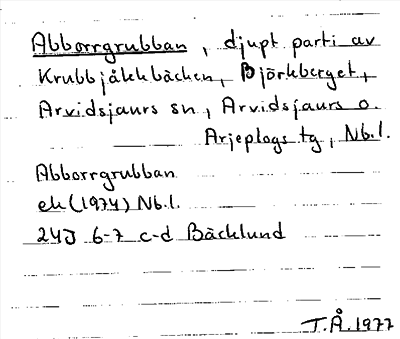 Abborrgrubban, djupt parti av
Krubbjåkkbäcken, Björkberget,
Arvidsjaurs sn, Arvidsjaurs o.
Arjeplogs tg, Nb.l.
Abborrgrubban
ek (1974) Nb.l.
24J 6-7 c-d Bäcklund
T.Å. 1977